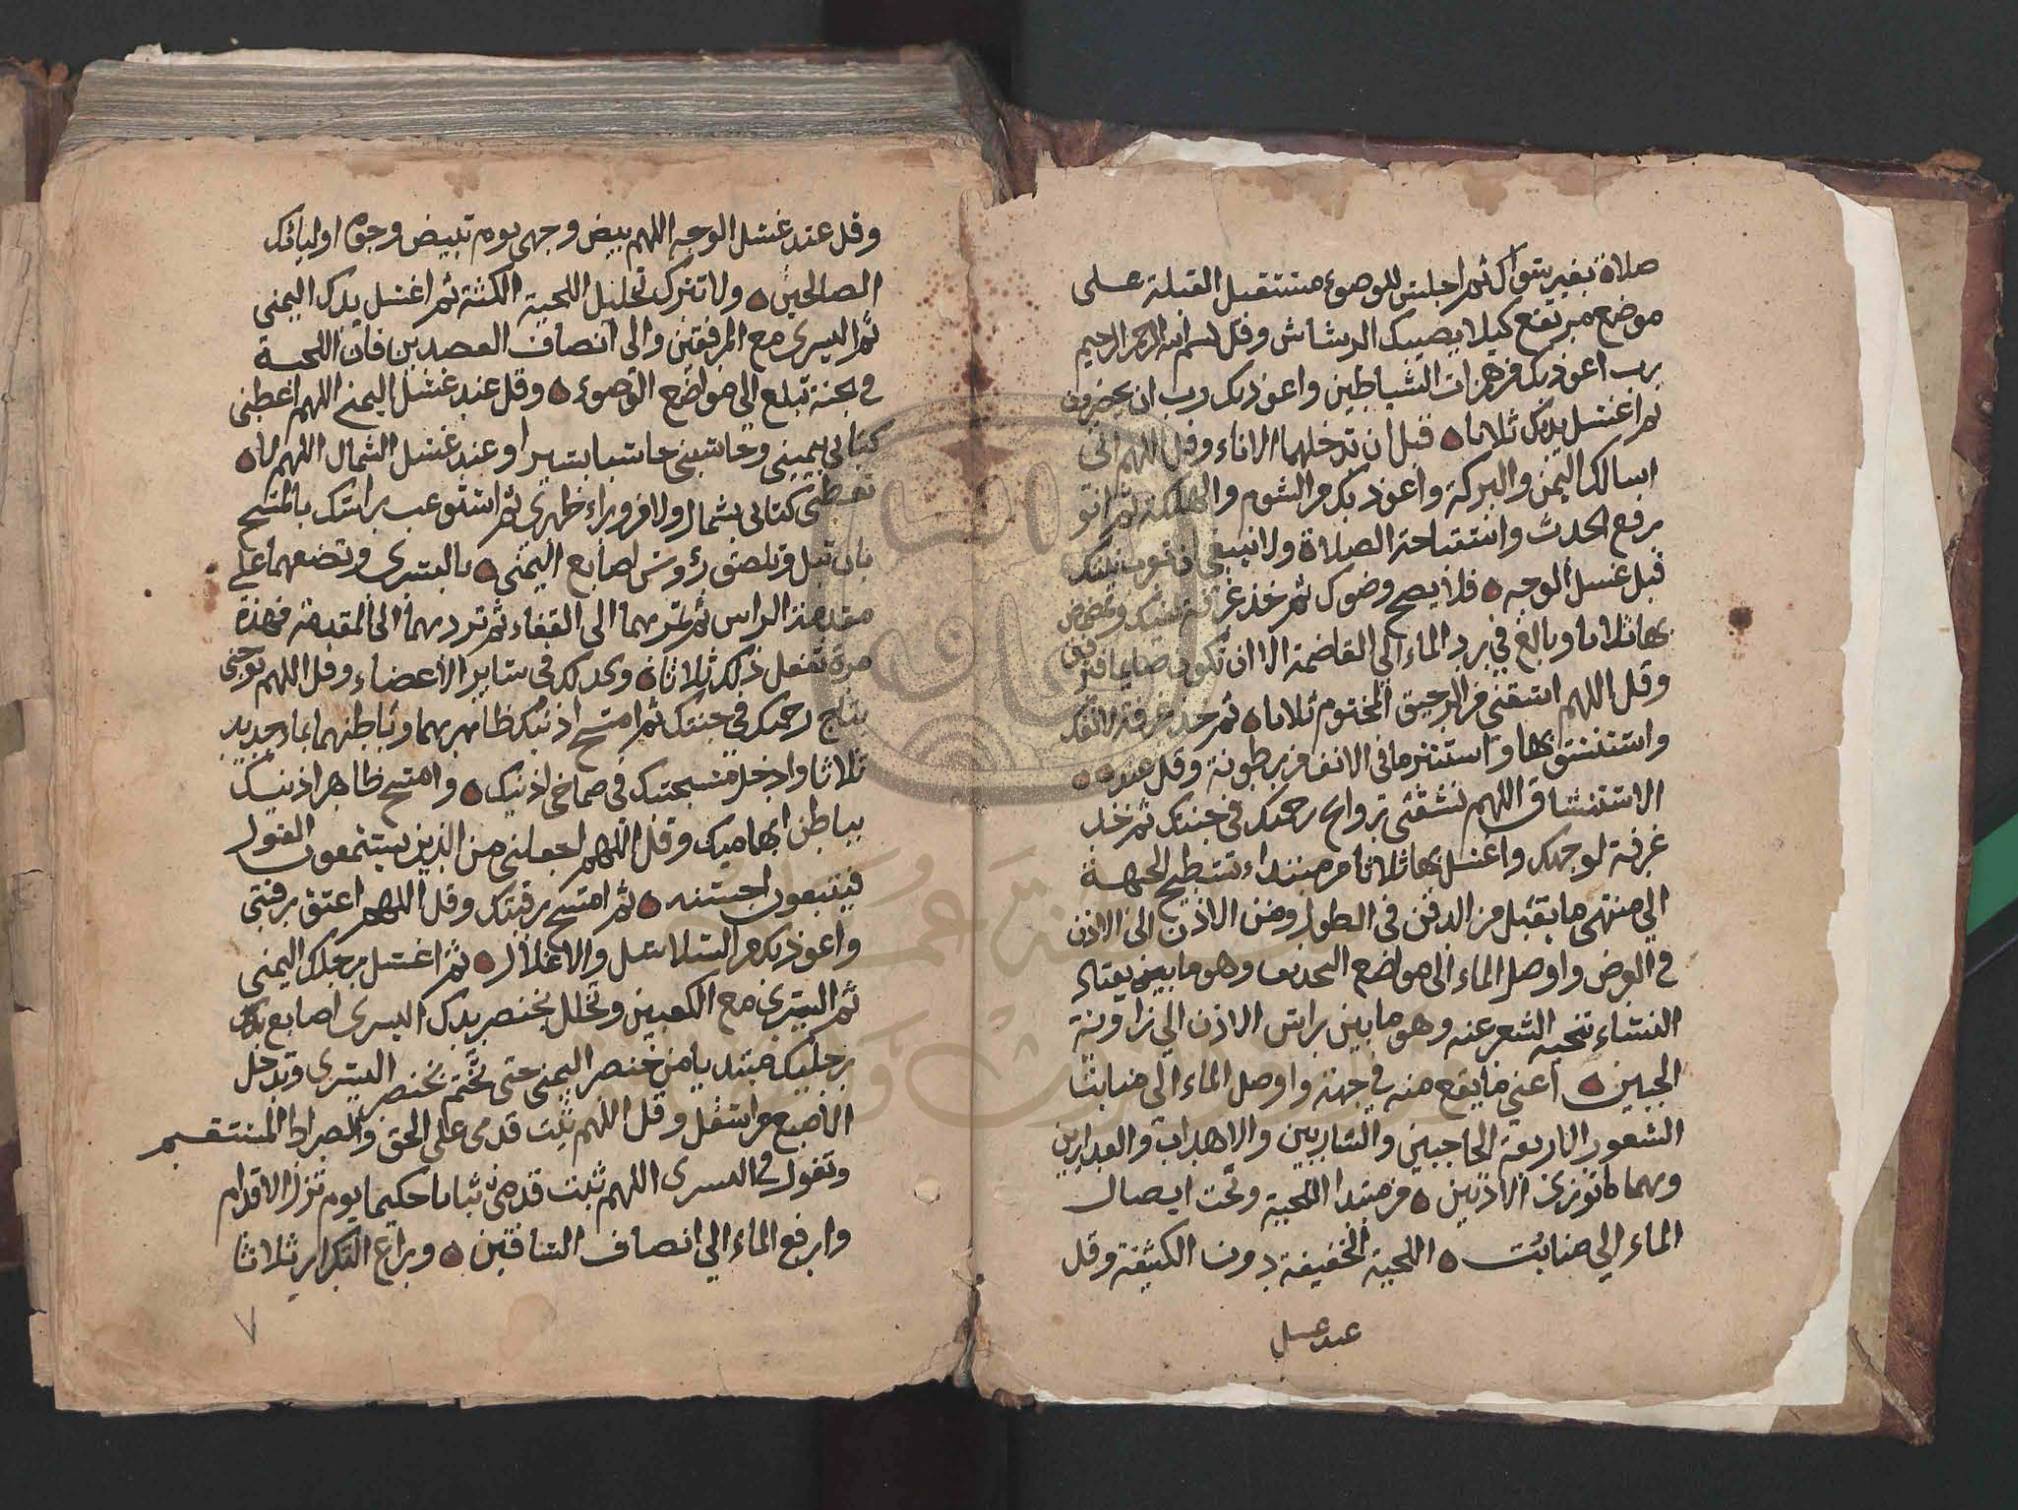 صلاة بغير سواك ثم اجلس للوضوء مستقبل القبلة على
موضع مرتفع كيلا يصيبك الرشاش وقل بسم الله الرحمن الرحيم
رب اعوذ بك من همزات الشياطين واعوذ بك رب ان يحضرون
ثم اغسل يديك ثلاثا قبل ان تدخلهما الاناء وقل اللهم اني
اسالك اليمن والبركة واعوذ بك من الشوم والهلكة ثم انو
رفع الحدث واستباحة الصلاة ولا ينبغي ان تعزب نيتك
قبل غسل الوجه فلا يصح وضوك ثم خذ غرفة لفيك وتمضمض
بها ثلاثا وبالغ في رد الماء الي الغلصمة الا ان تكون صايما فترفق
وقل اللهم اسقني من الرحيق المختوم ثلاثا ثم خذ غرفة لانفك
واستنشق بها واستنثر ما في الانف من رطوبة وقل عند
الاستنشاق اللهم نشقني روايح رحمتك في جنتك ثم خذ
غرفة لوجهك واغسل بها ثلاثا من مبتداء تسطيح الجبهة
الي منتهى ما يقبل من الدقن في الطول ومن الاذن الى الاذن
في العرض واوصل الماء الى مواضع التحديف وهو ما بين يعتاد
النساء تنحية الشعر عنه وهو ما بين راس الاذن الي زاوية
الجبين اعني ما يقع منه في جهة واوصل الماء الى منابت
الشعور الاربعة الحاجبين والشاربين والاهداب والعذارين
وهما ما توازي الاذنين من مبتدا اللحية وتحت ايصال
الماء الي منابت اللحية الخفيفة دون الكثيفة وقل
عند غسل
وقل عند غسل الوجه اللهم بيض وجهي يوم تبيض وجوه اوليائك
الصالحين ولا تترك تخليل اللحية الكثة ثم اغسل يدك اليمنى
ثم اليسرى مع المرفقين والى انصاف العضدين فان اللحية
في الجنة تبلغ الي مواضع الوضوء وقل عند غسل اليمنى اللهم اعطني
كتابي بيميني وحاسبني حسابا يسيرا وعند غسل الشمال اللهم لا
تعطني كتابي بشمالي ولا من وراء ظهري ثم استوعب راسك بالمسح
بان تبل وتلصق رؤوس اصابع اليمني باليسرى وتضعهما على
مقدمة الراس ثم تمر بهما الى القفاء ثم تردهما الى المقدمة فهذه
مرة تفعل ذلك ثلاثا وكذلك في ساير الاعضاء وقل اللهم توجني
بتاج رحمتك في جنتك ثم امسح اذنيك ظاهرهما وباطنهما بماء جديد
ثلاثا وادخل مسبحتيك في صماخي اذنيك وامسح ظاهر اذنيك
بباطن ابهاميك وقل اللهم اجعلني من الذين يستمعون القول
فيتبعون احسنه ثم امسح رقبتك وقل اللهم اعتق رقبتي
واعوذ بك من السلاسل والاغلال ثم اغسل رجلك اليمني
ثم اليسرى مع الكعبين وتخلل بخنصر يدك اليسرى اصابع
رجليك مبتديا من خنصر اليمنى حتى تختم بخنصر اليسرى وتدخل
الاصبع من اسفل وقل اللهم ثبت قدمي على الحق والصراط المستقيم
وتقول في اليسرى اللهم ثبت قدمي ثباتا حكيما يوم تزل الاقدام
وارفع الماء الي انصاف الساقين وراع التكرار ثلاثا
٧